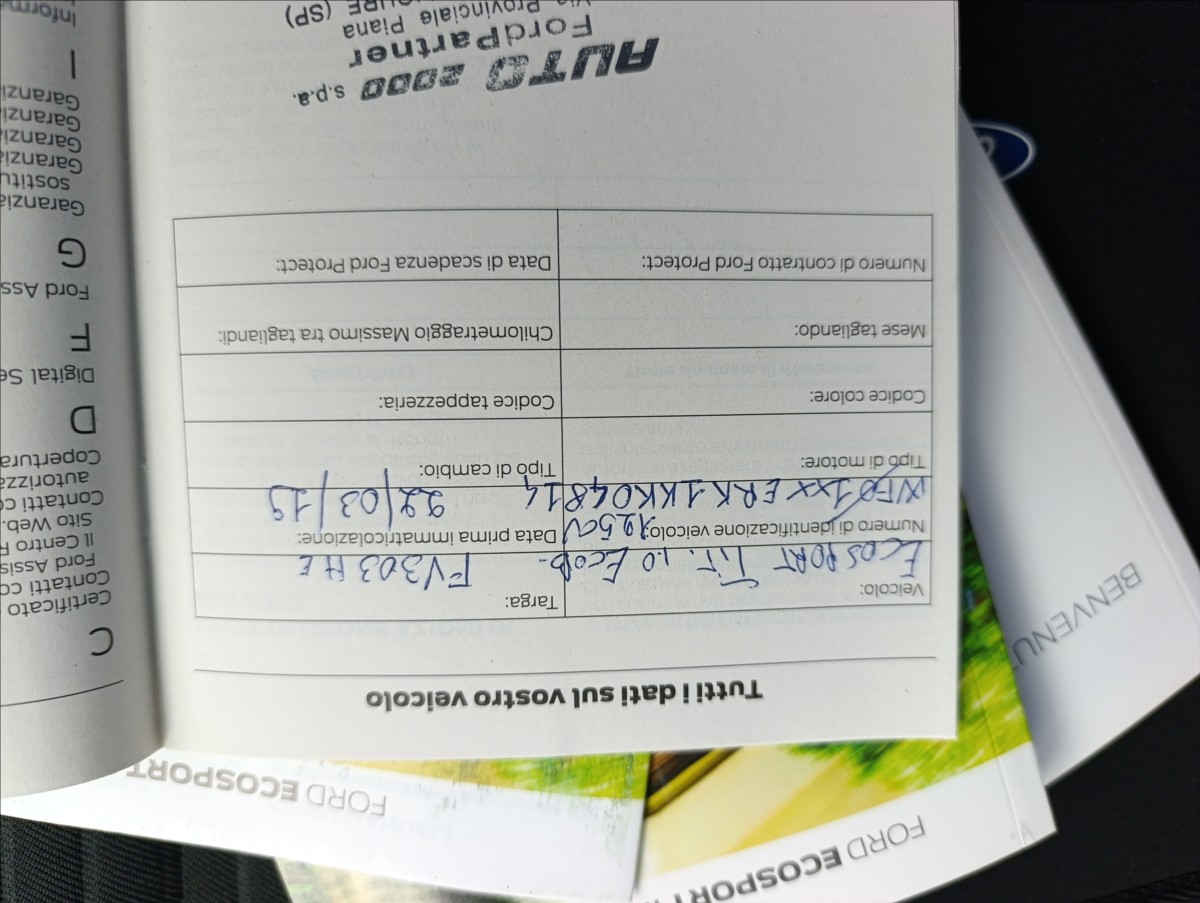 Tutti i dati sul vostro veicolo
Veicolo:
ECOSPORT TIT. 1.0 ECOB.
125CV
Targa:
FV303HE
Numero di identificazione veicolo:
WF01XXERK1KK04814
Data prima immatricolazione:
22/03/19
Tipo di motore:
Tipo di cambio:
Codice colore:
Codice tappezzeria:
Mese tagliando:
Chilometraggio Massimo tra tagliandi:
Numero di contratto Ford Protect:
Data di scadenza Ford Protect:
AUTO 2000 s.p.a.
FordPartner
Provinciale Piana
(SP)
C
Certificato
Contatti
Ford
Il Centro
Sito Web.
Contatti
D
Digital
F
Ford
G
Garanzia
I
FORD ECOSPORT
FORD ECOSPORT